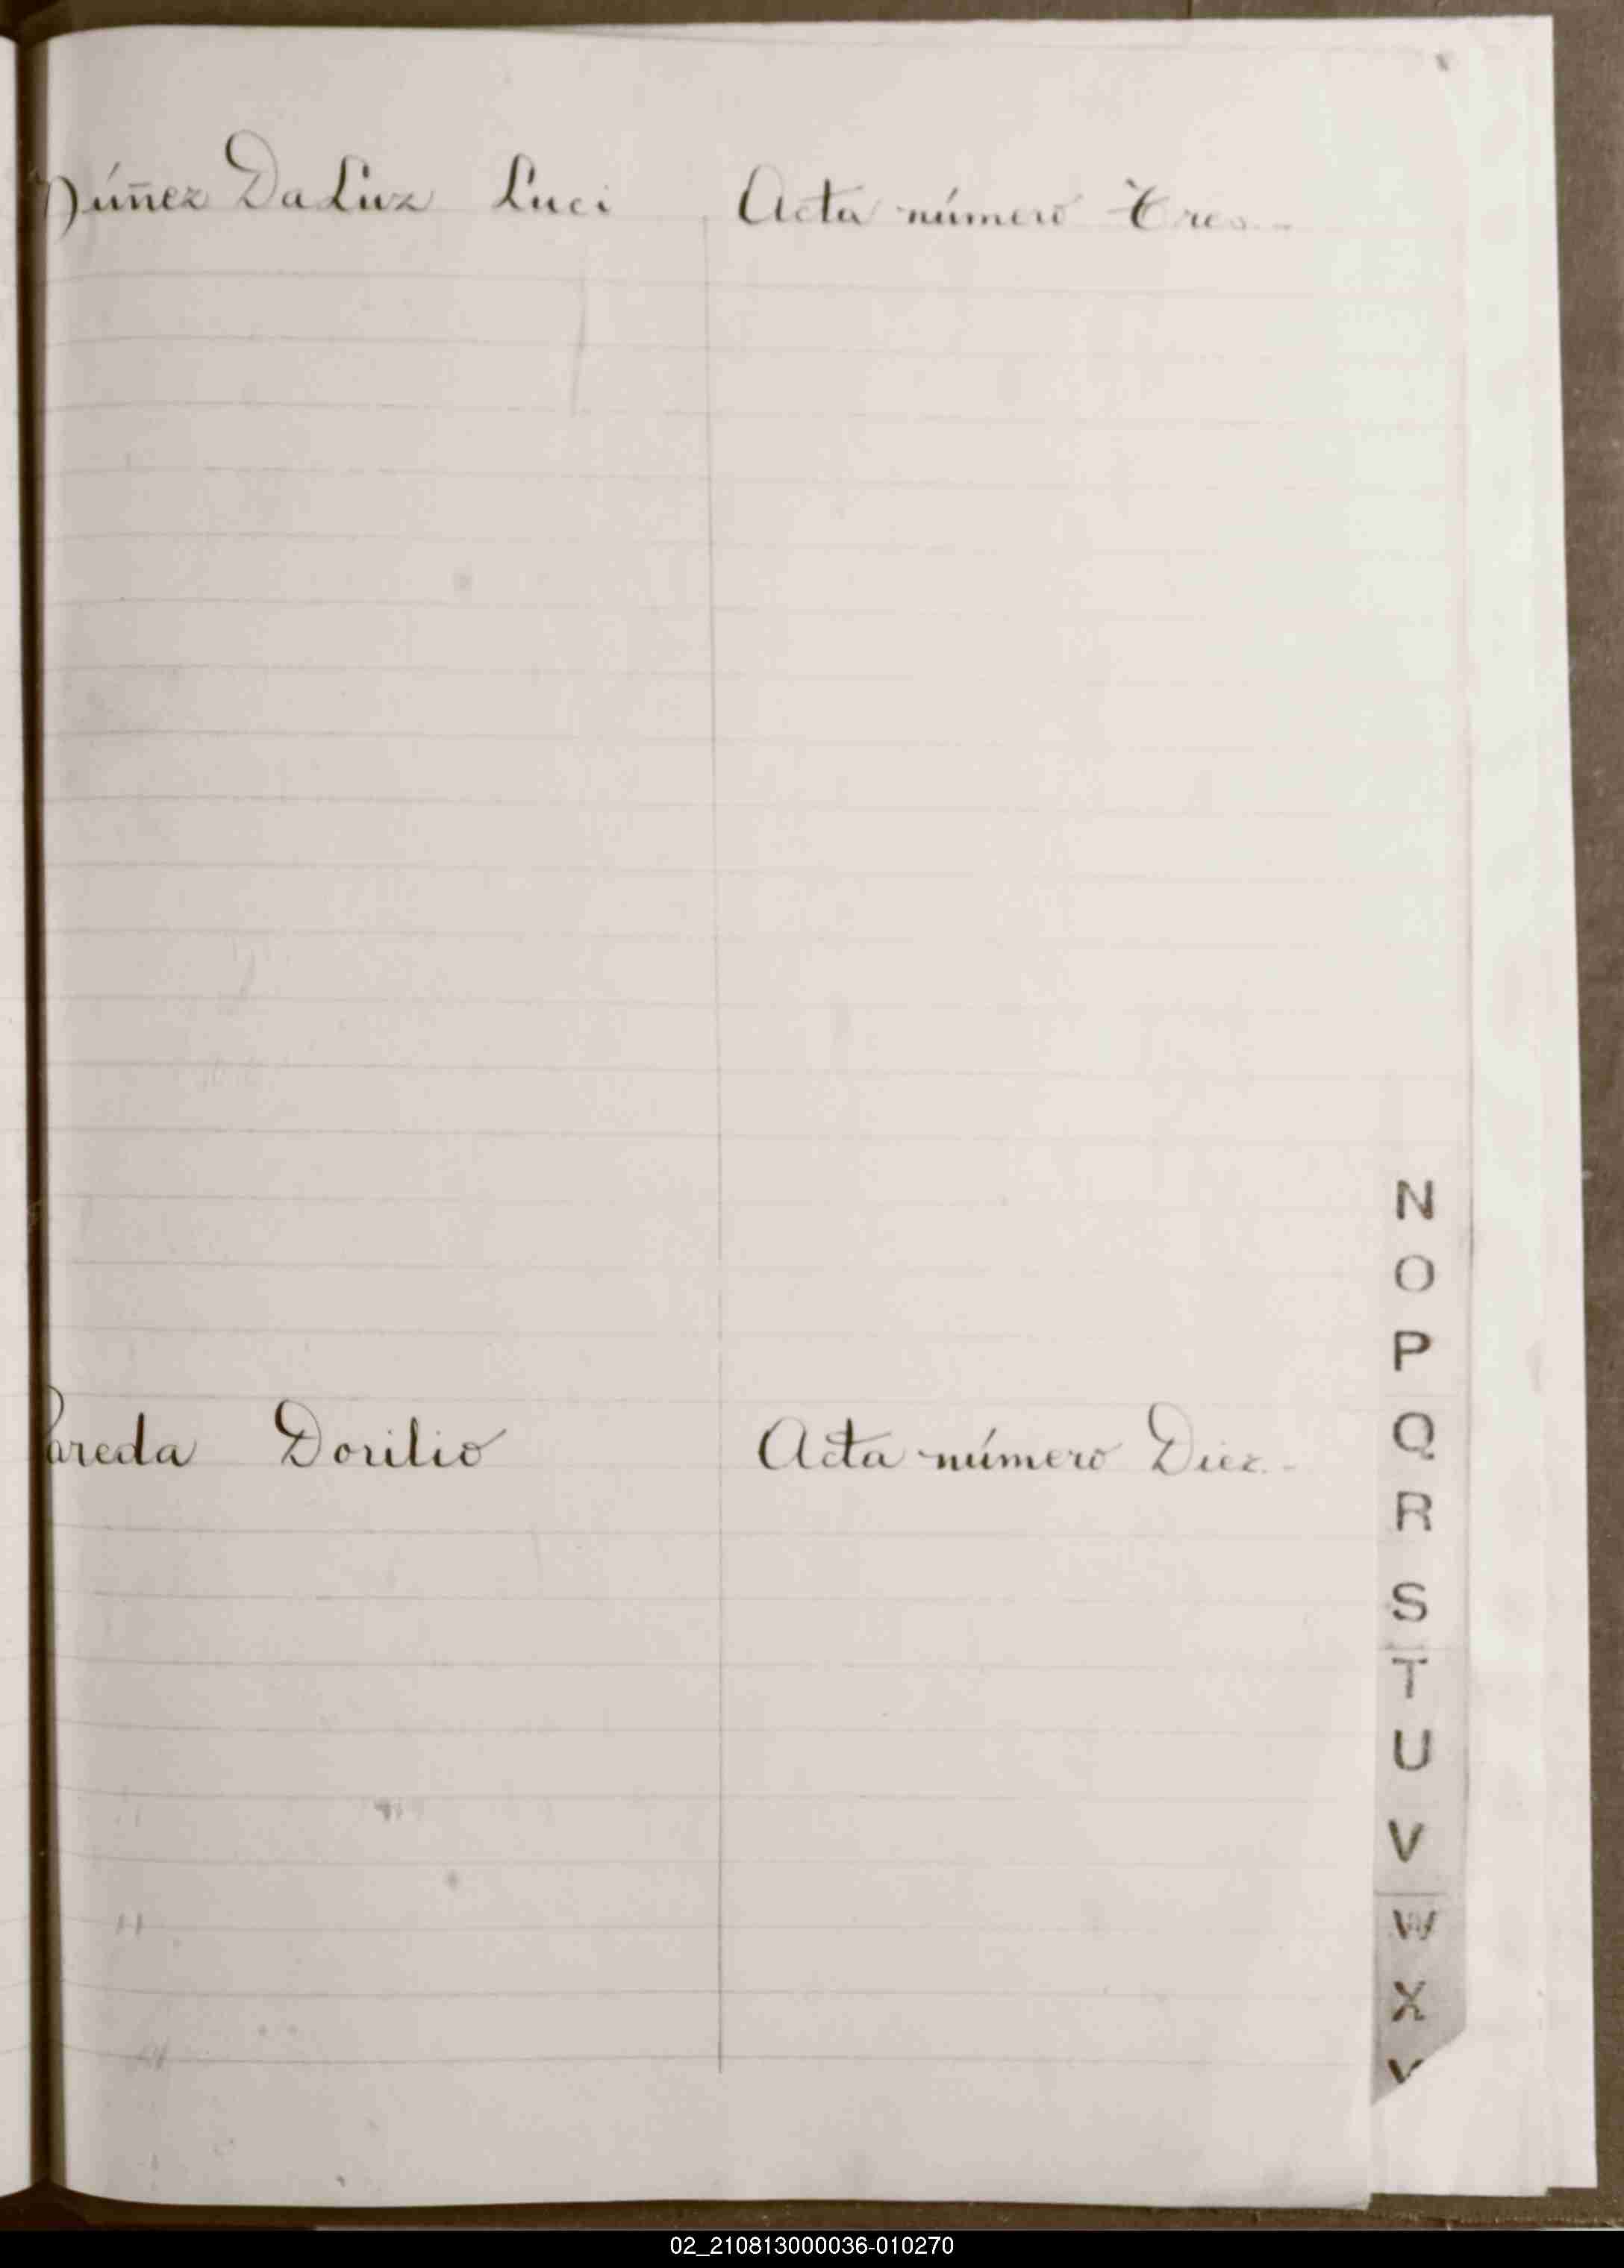 Núñez DaLuz Luci Acta número Tres.-
N
O
P
Pareda Dorilio Acta número Diez.-
Q
R
S
T
U
V
W
X
Y
02_210813000036-010270